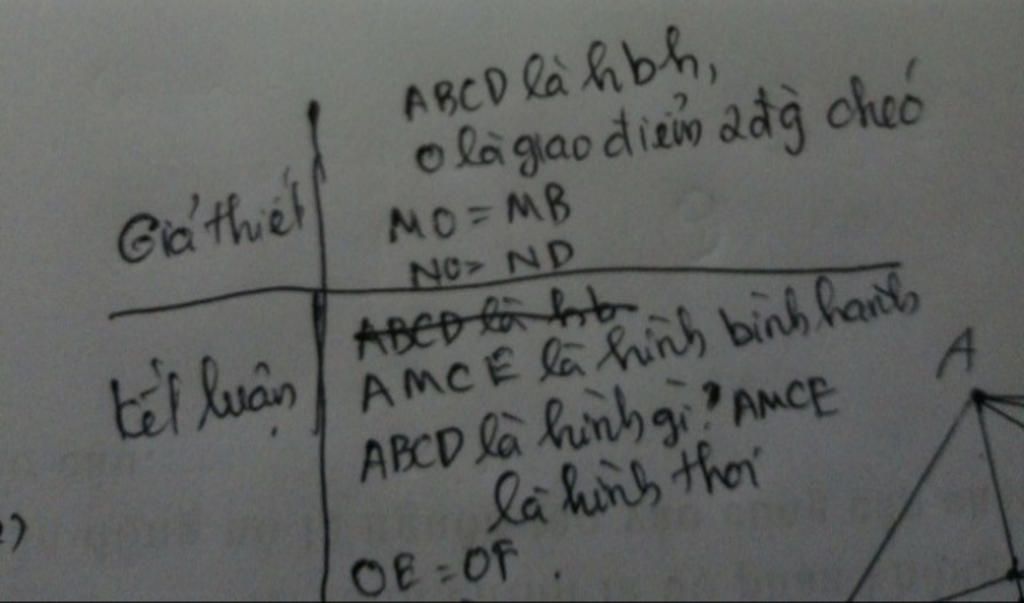 ABCD là hbh,
O là giao điểm 2 đg chéo
Giả thiết
MO = MB
NO = ND
ABCD là hb
AMCE là hình bình hành
Kết luận
ABCD là hình gì? AMCE
là hình thoi
OE = OF.
A